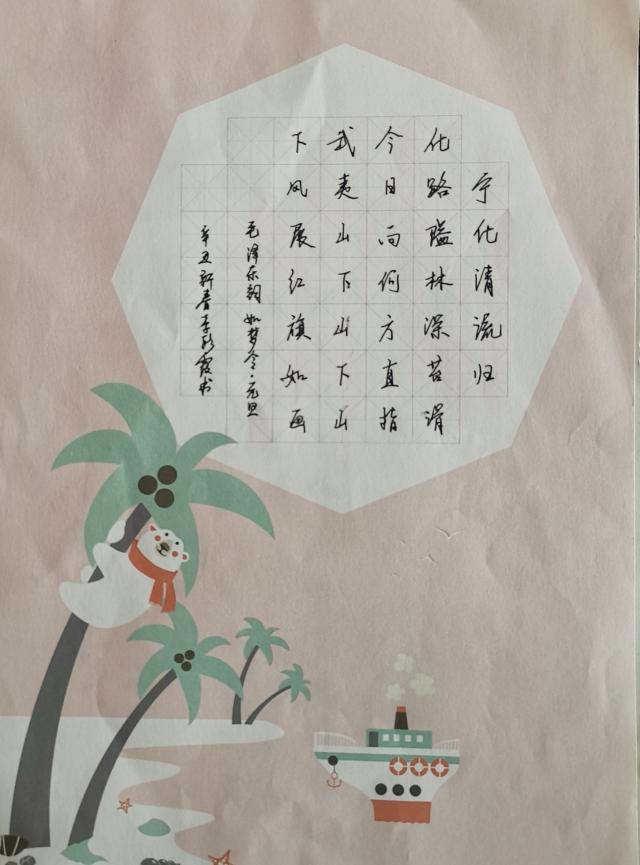 宁化清流归
化路隘林深苔滑
今日向何方直指
武夷山下山下山
下风展红旗如画
毛泽东词 如梦令·元旦
辛丑新春李霞书